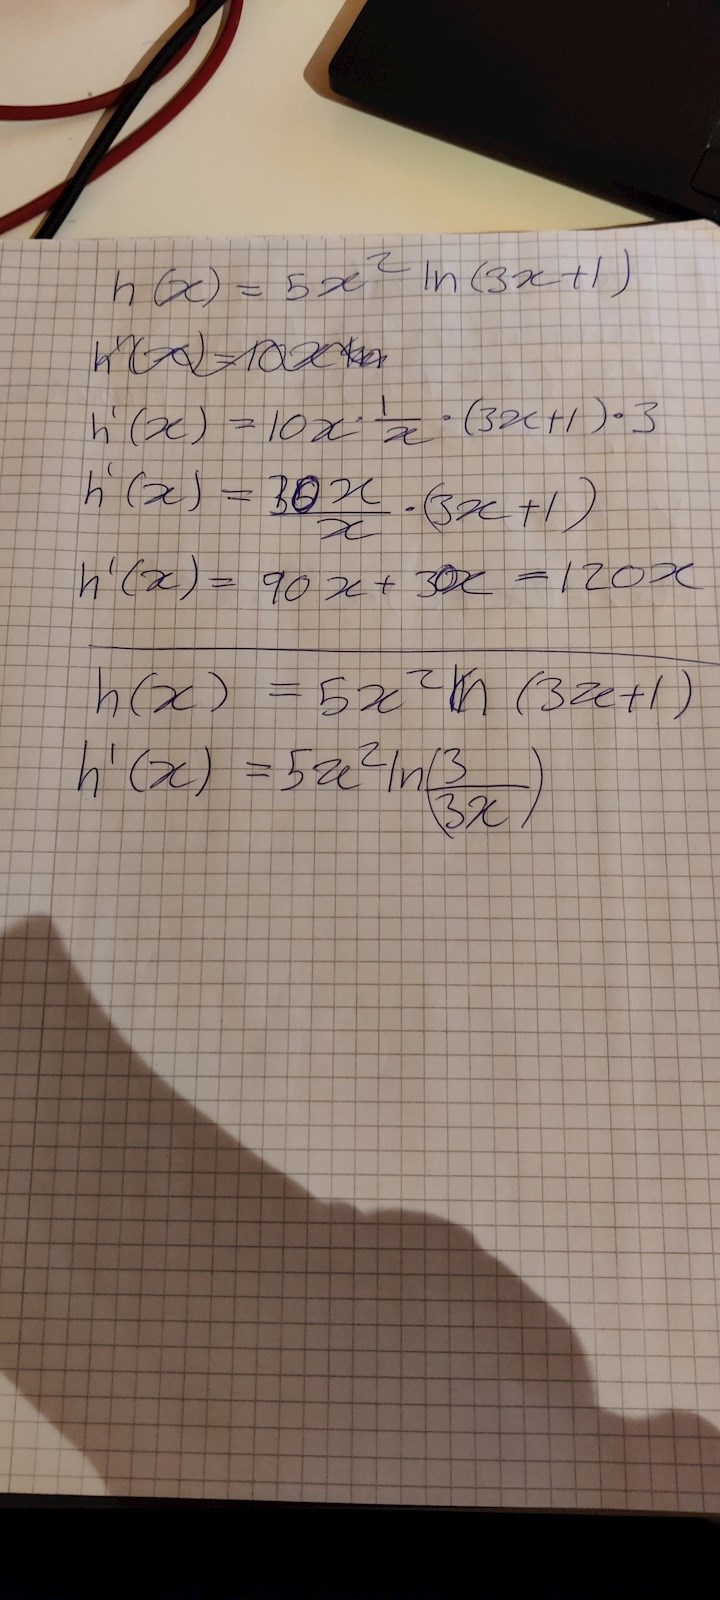 h(x) = 5x² ln(3x+1)
h'(x) = 10x ln
h'(x) = 10x · 1/x · (3x+1) · 3
h'(x) = 30x/x · (3x+1)
h'(x) = 90x + 30x = 120x
h(x) = 5x² ln (3x+1)
h'(x) = 5x² ln(3/3x)